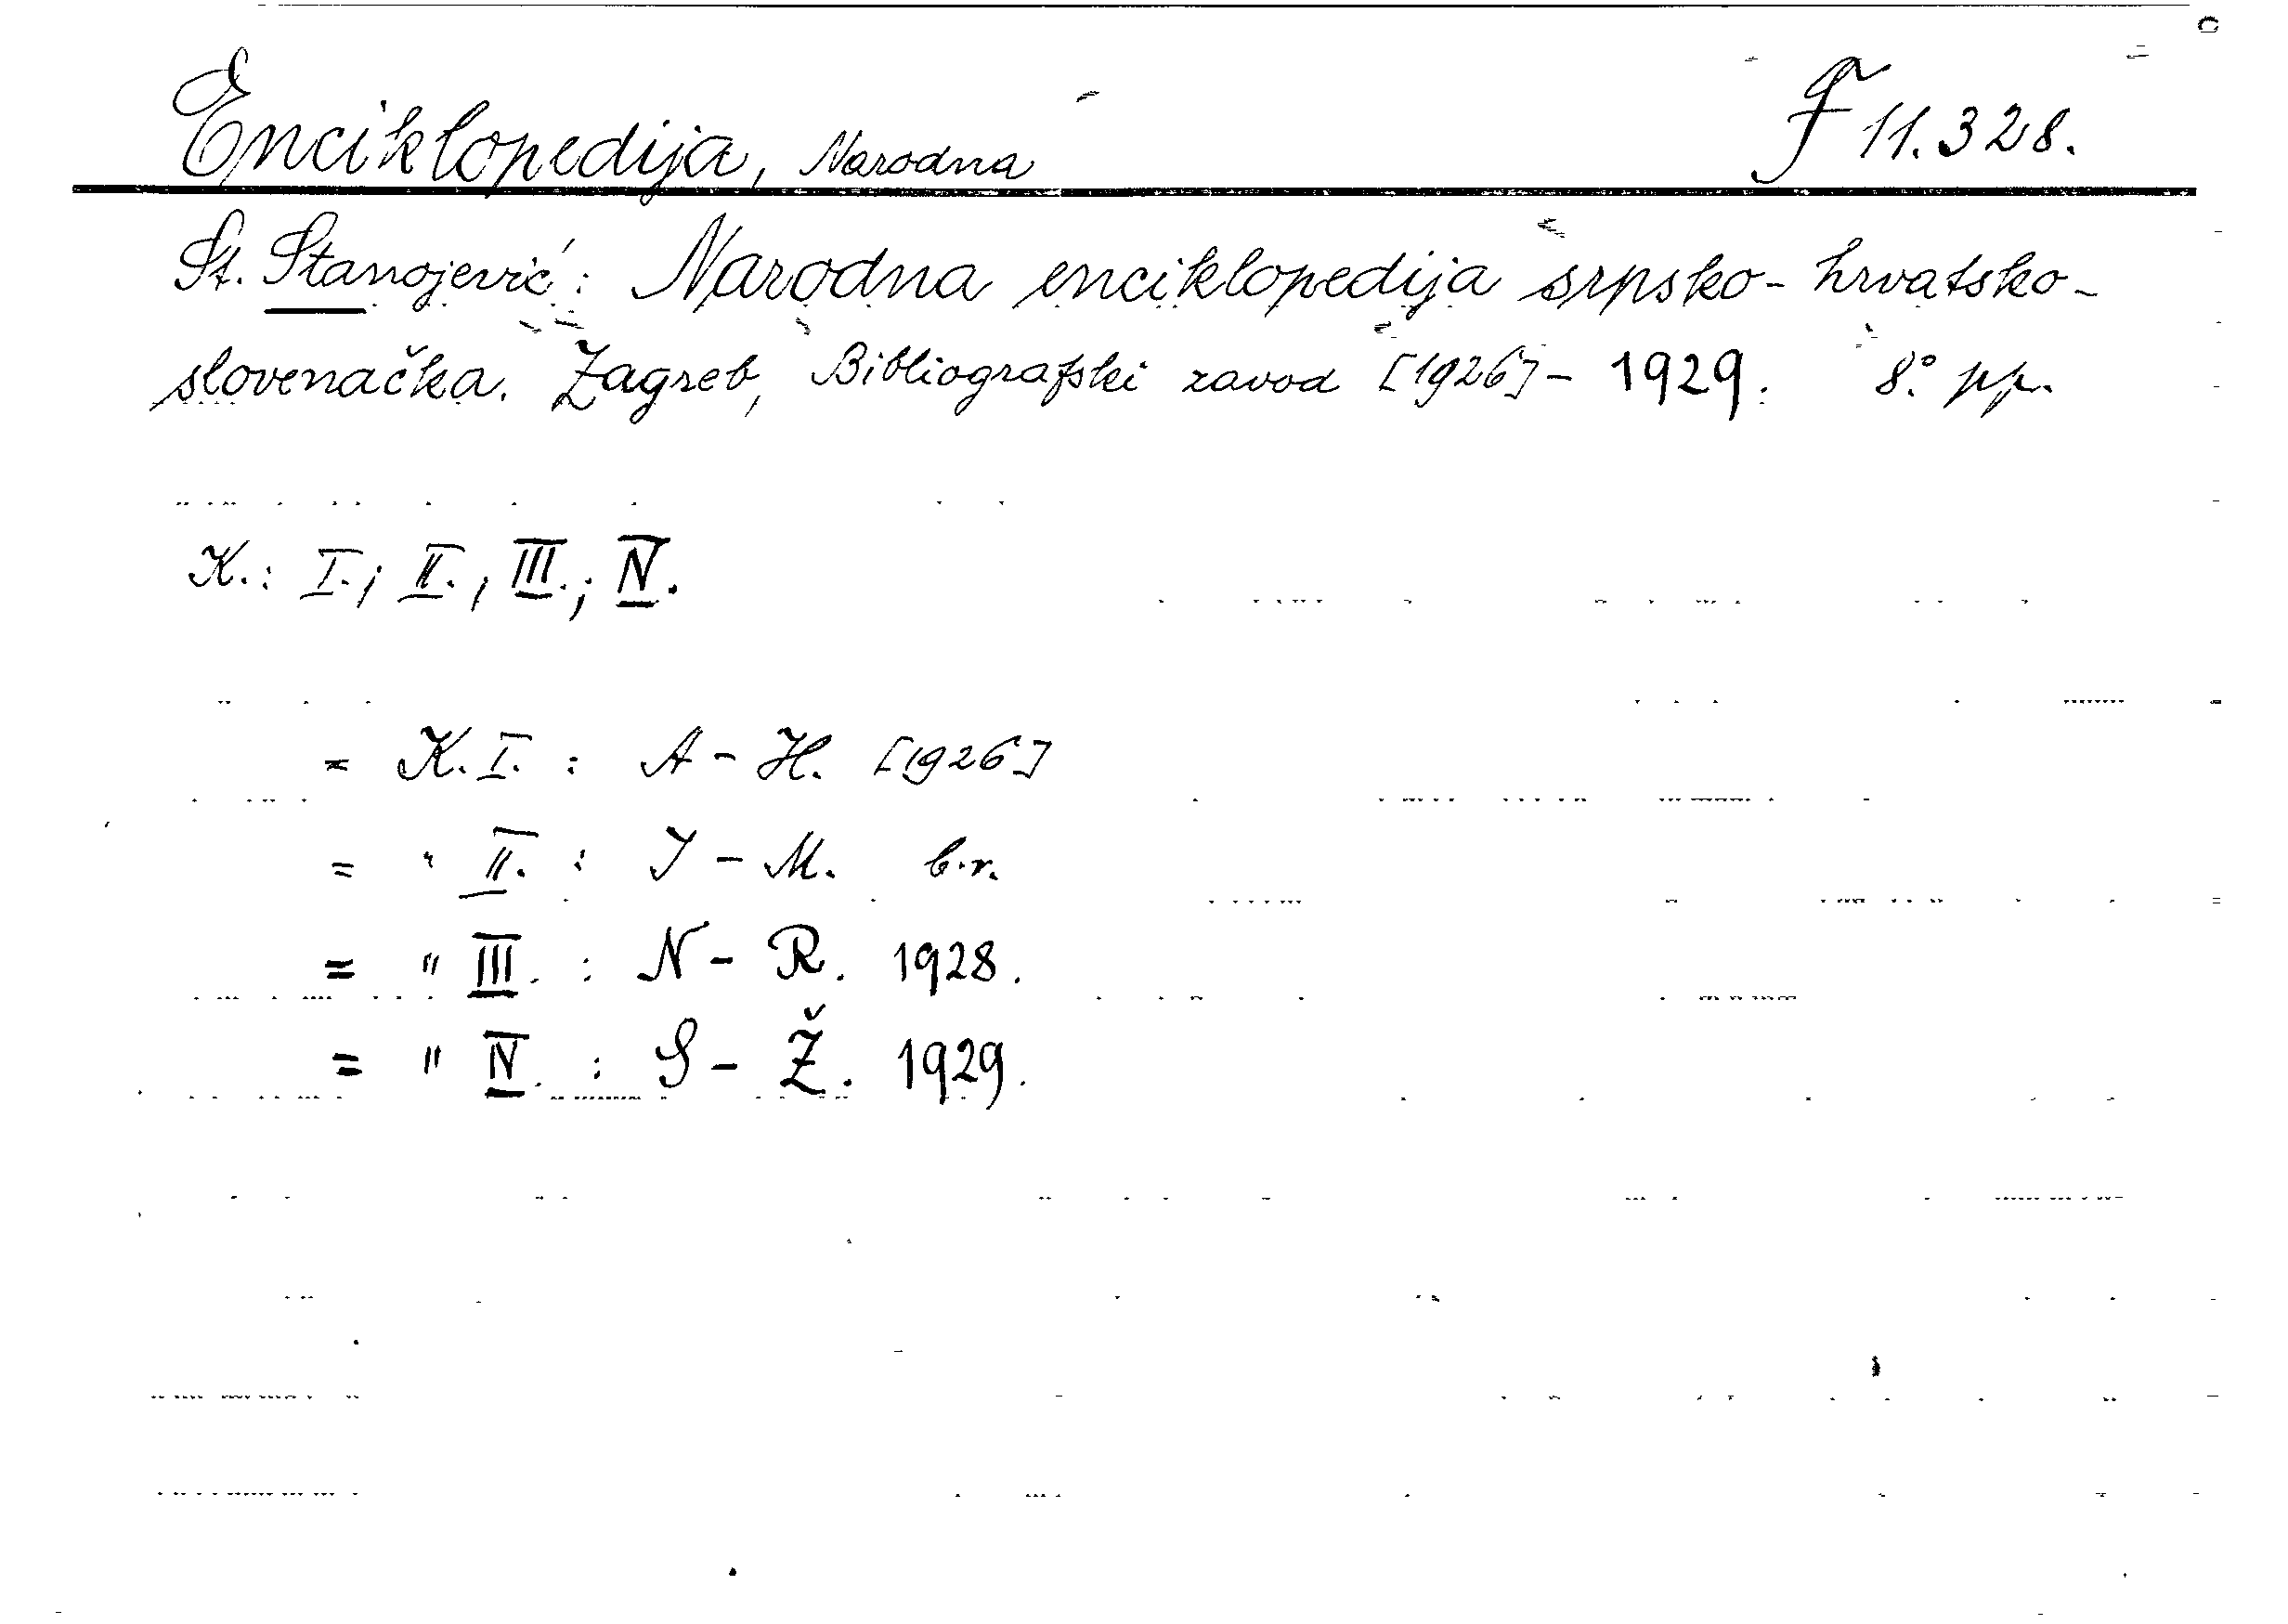 Enciklopedija, Narodna F 11.328.
St. Stanojević: Narodna enciklopedija srpsko-hrvatsko-
slovenačka. Zagreb, Bibliografski zavod [1926]-1929. 8° pp.
K.: I.; II.; III.; IV.
= K. I. : A - H. [1926]
= " II. : I - M. b.r.
= " III. : N - R. 1928.
= " IV. : S - Ž. 1929.